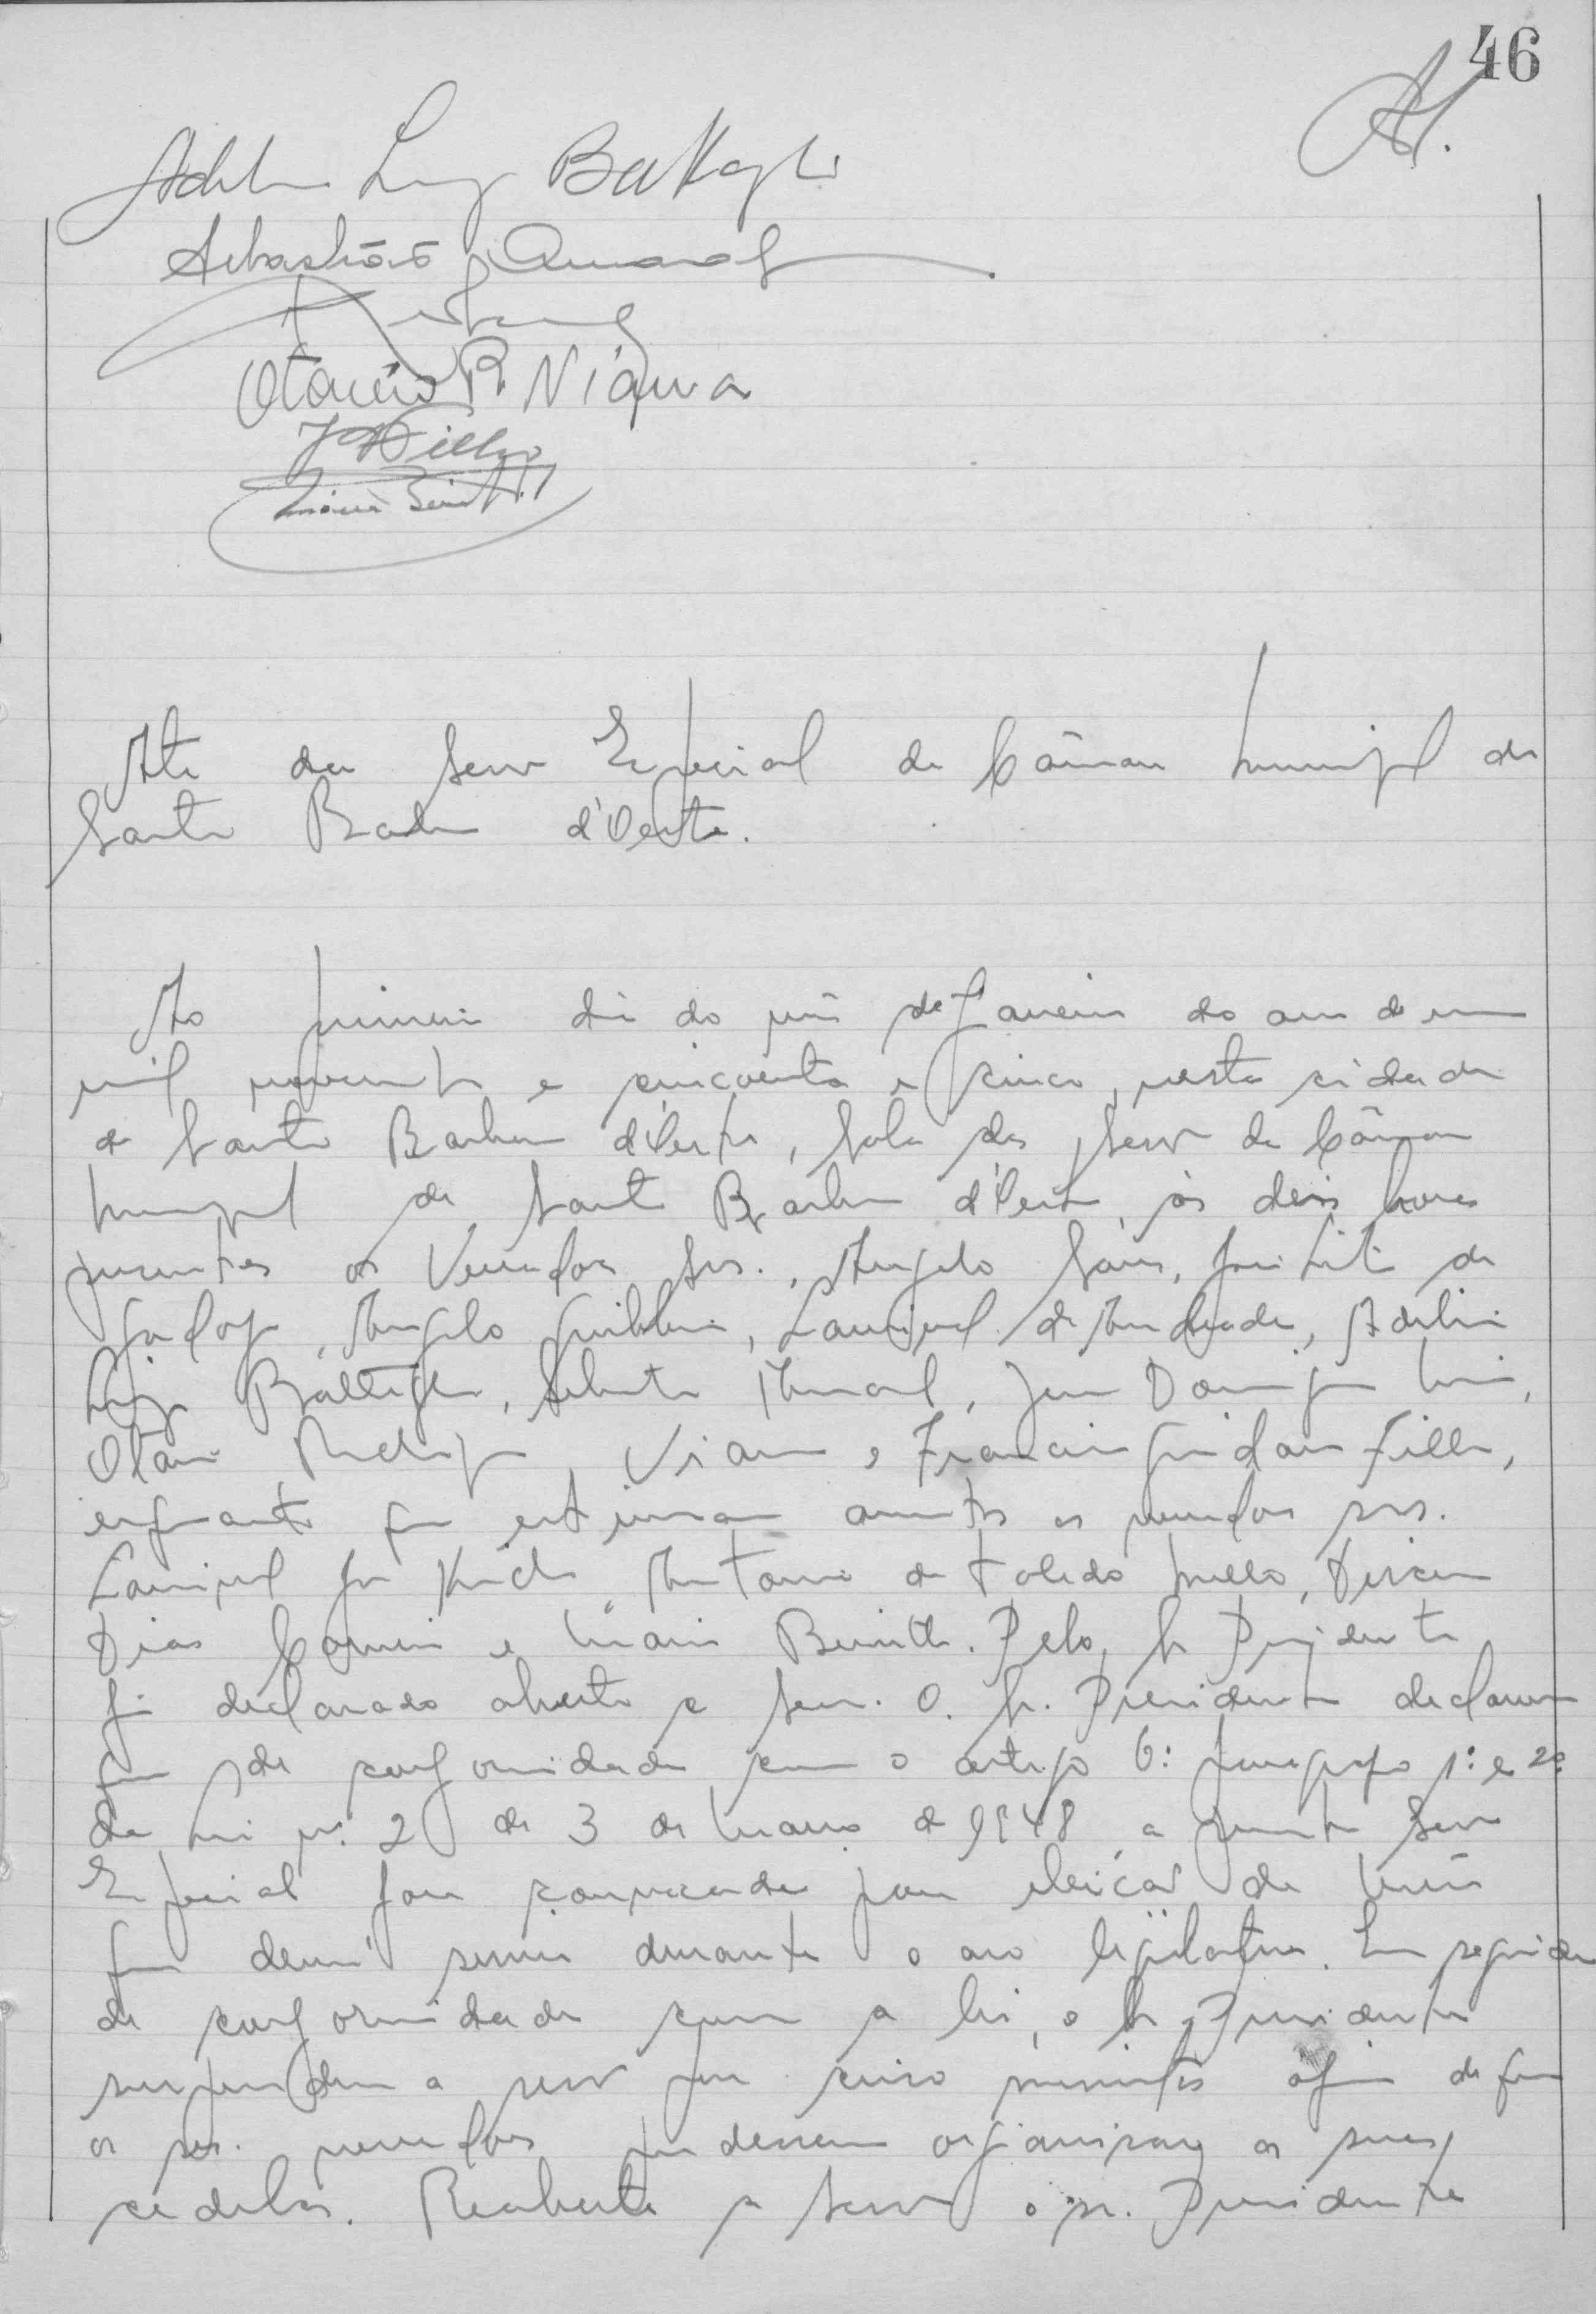 46
Luiz Battagli
Sebastião Amaral
Otavio R. Viana
Ata da Sessão Especial da Câmara Municipal de
Santa Barbara d'Oeste.
Ao primeiro dia do mês de Janeiro do ano de um
mil novecentos e cincoenta e cinco, nesta cidade
de Santa Barbara d'Oeste, Sala das Sessões da Câmara
Municipal de Santa Barbara d'Oeste, às dez horas
presentes os Vereadores Srs. Angelo Sans, de
Godoy, Angelo Giubbina, Laurival de Andrade, Adelino
Luiz Battagli, Sebastião Amaral, Domingos
Otavio Rodrigues Viana e Francisco Filho,
enquanto que estiveram ausentes os vereadores srs.
Antonio de Toledo Mello, Dirceu
Dias Carneiro e Mario Benitti. Pelo Sr. Presidente
foi declarado aberta a Sessão. O. Sr. Presidente declarou
que de conformidade com o artigo 6º paragrafo 1º e 2º
da Lei nº 2 de 3 de Março de 1948, a presente Sessão
Especial fora convocada para eleição da Mesa
que deverá servir durante o ano legislativo. Em seguida
de conformidade com a lei, o Sr. Presidente
suspendeu a sessão por cinco minutos afim de que
os srs. vereadores pudessem organizar as suas
cedulas. Reaberta a Sessão o sr. Presidente